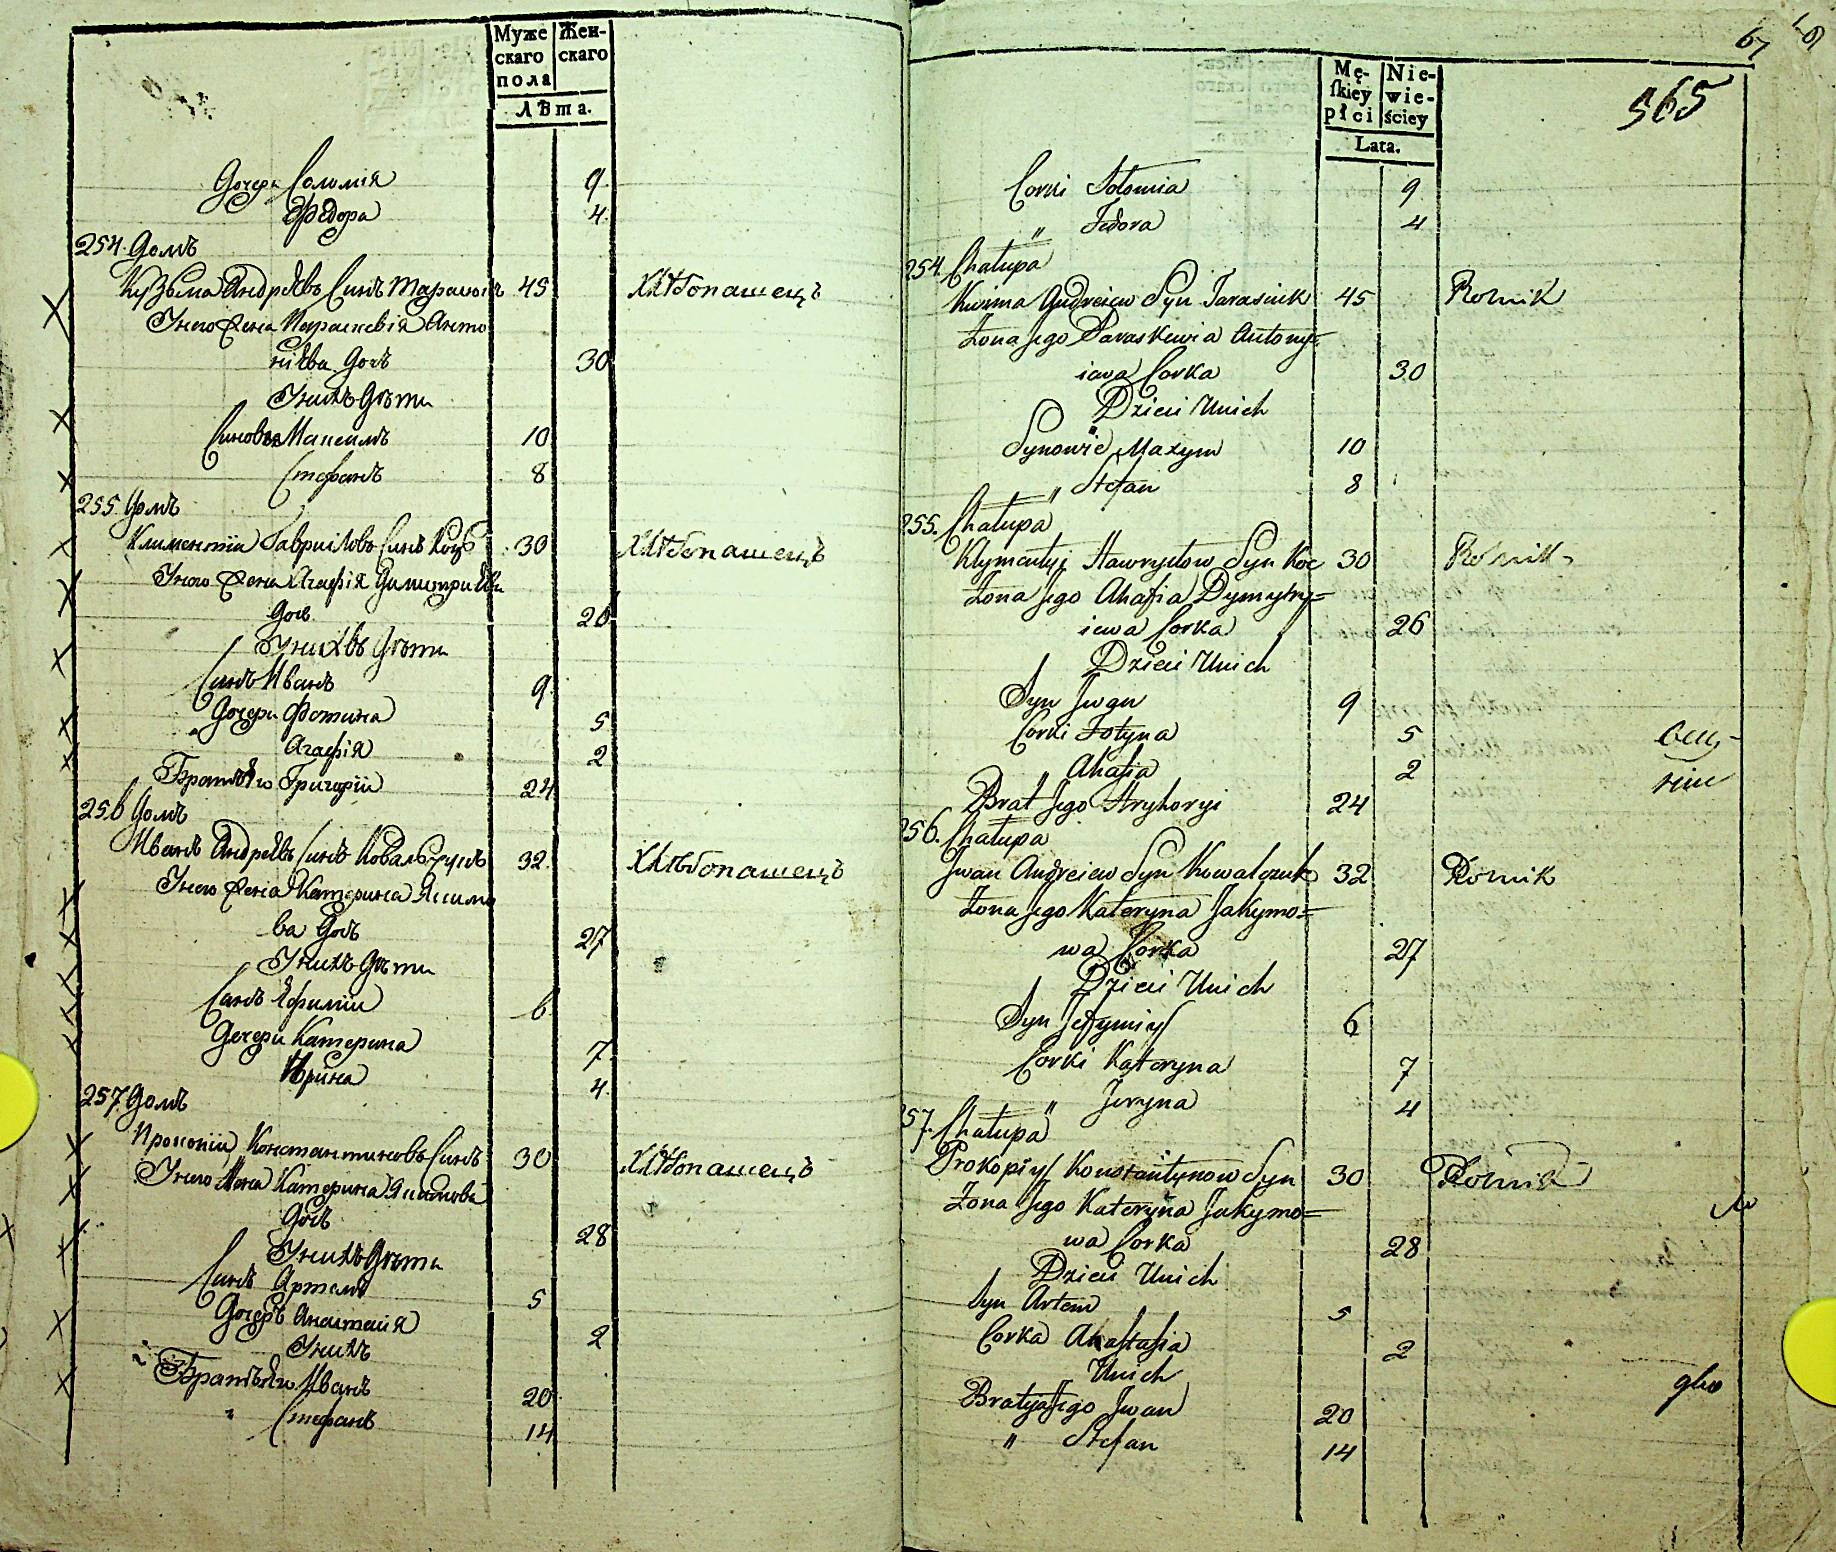 Муже Жен-
скаго скаго
пола
Лѣта.
Дочери Соломія 9
Ѳедора 4
254. Домъ
Кузьма Андреевъ Синъ Тарасюкъ 45 Хлѣбопашецъ
Уного Жена Параскевія Анто
ніева Дочь 30
Унихъ Дѣти
Синовья Максимъ 10
Стефанъ 8
255. Домъ
Климентій Гавриловъ Синъ Коцъ 30 Хлѣбопашецъ
Уного Жена Агафія Димитриева
Дочь 26
Унихъ Дѣти
Синъ Иванъ 9
Дочери Фотина 5
Агафія 2
Братъ Его Григорій 24
256 Домъ
Иванъ Андреевъ Синъ Ковальчукъ 32 Хлѣбопашецъ
Уного Жена Катерина Якимо
ва Дочь 27
Унихъ Дѣти
Синъ Ефимій 6
Дочери Катерина 7
Ирина 4
257 Домъ
Прокопій Константиновъ Синъ 30 Хлѣбопашецъ
Уного Жена Катерина Якимова
Дочь 28
Унихъ Дѣти
Синъ Артемъ 5
Дочерь Анастасія 2
Унихъ
Братья Его Иванъ 20
" Стефанъ 14
67
565
Mę- Nie-
ſkiey wie-
płci ściey
Lata.
Corki Sołomia 9
" Fedora 4
254. Chałupa
Kuzma Andreiew Syn Tarasiuk 45 Rolnik
Żona Jego Paraskewia Antony=
iowa Corka 30
Dzieci Unich
Synowie Maxym 10
" Stefan 8
255. Chałupa
Klymentyj Hawryłow Syn Koc 30 Rolnik
Żona Jego Ahafia Dymytry=
iewa Corka 26
Dzieci Unich
Syn Jwan 9
Corki Fotyna 5
" Ahafia 2
Brat Jego Hryhoryi 24
256. Chałupa
Jwan Andreiew Syn Kowalczuk 32 Rolnik
Żona Jego Kateryna Jakymo=
wa Corka 27
Dzieci Unich
Syn Jefymiy 6
Corki Kateryna 7
" Jeryna 4
257. Chałupa
Prokopiy Konstantynow Syn 30 Rolnik
Żona Jego Kateryna Jakymo=
wa Corka 28
Dzieci Unich
Syn Artem 5
Corka Anastasia 2
Unich
Bratya Jego Jwan 20
" Stefan 14